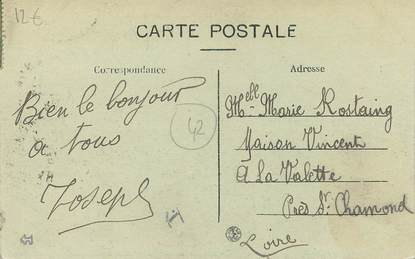 12€
CARTE POSTALE
Correspondance
Adresse
Bien le bonjour
a tous
Joseph
42
Melle Marie Rostaing
Maison Vincent
A La Valette
Près St. Chamond
Loire